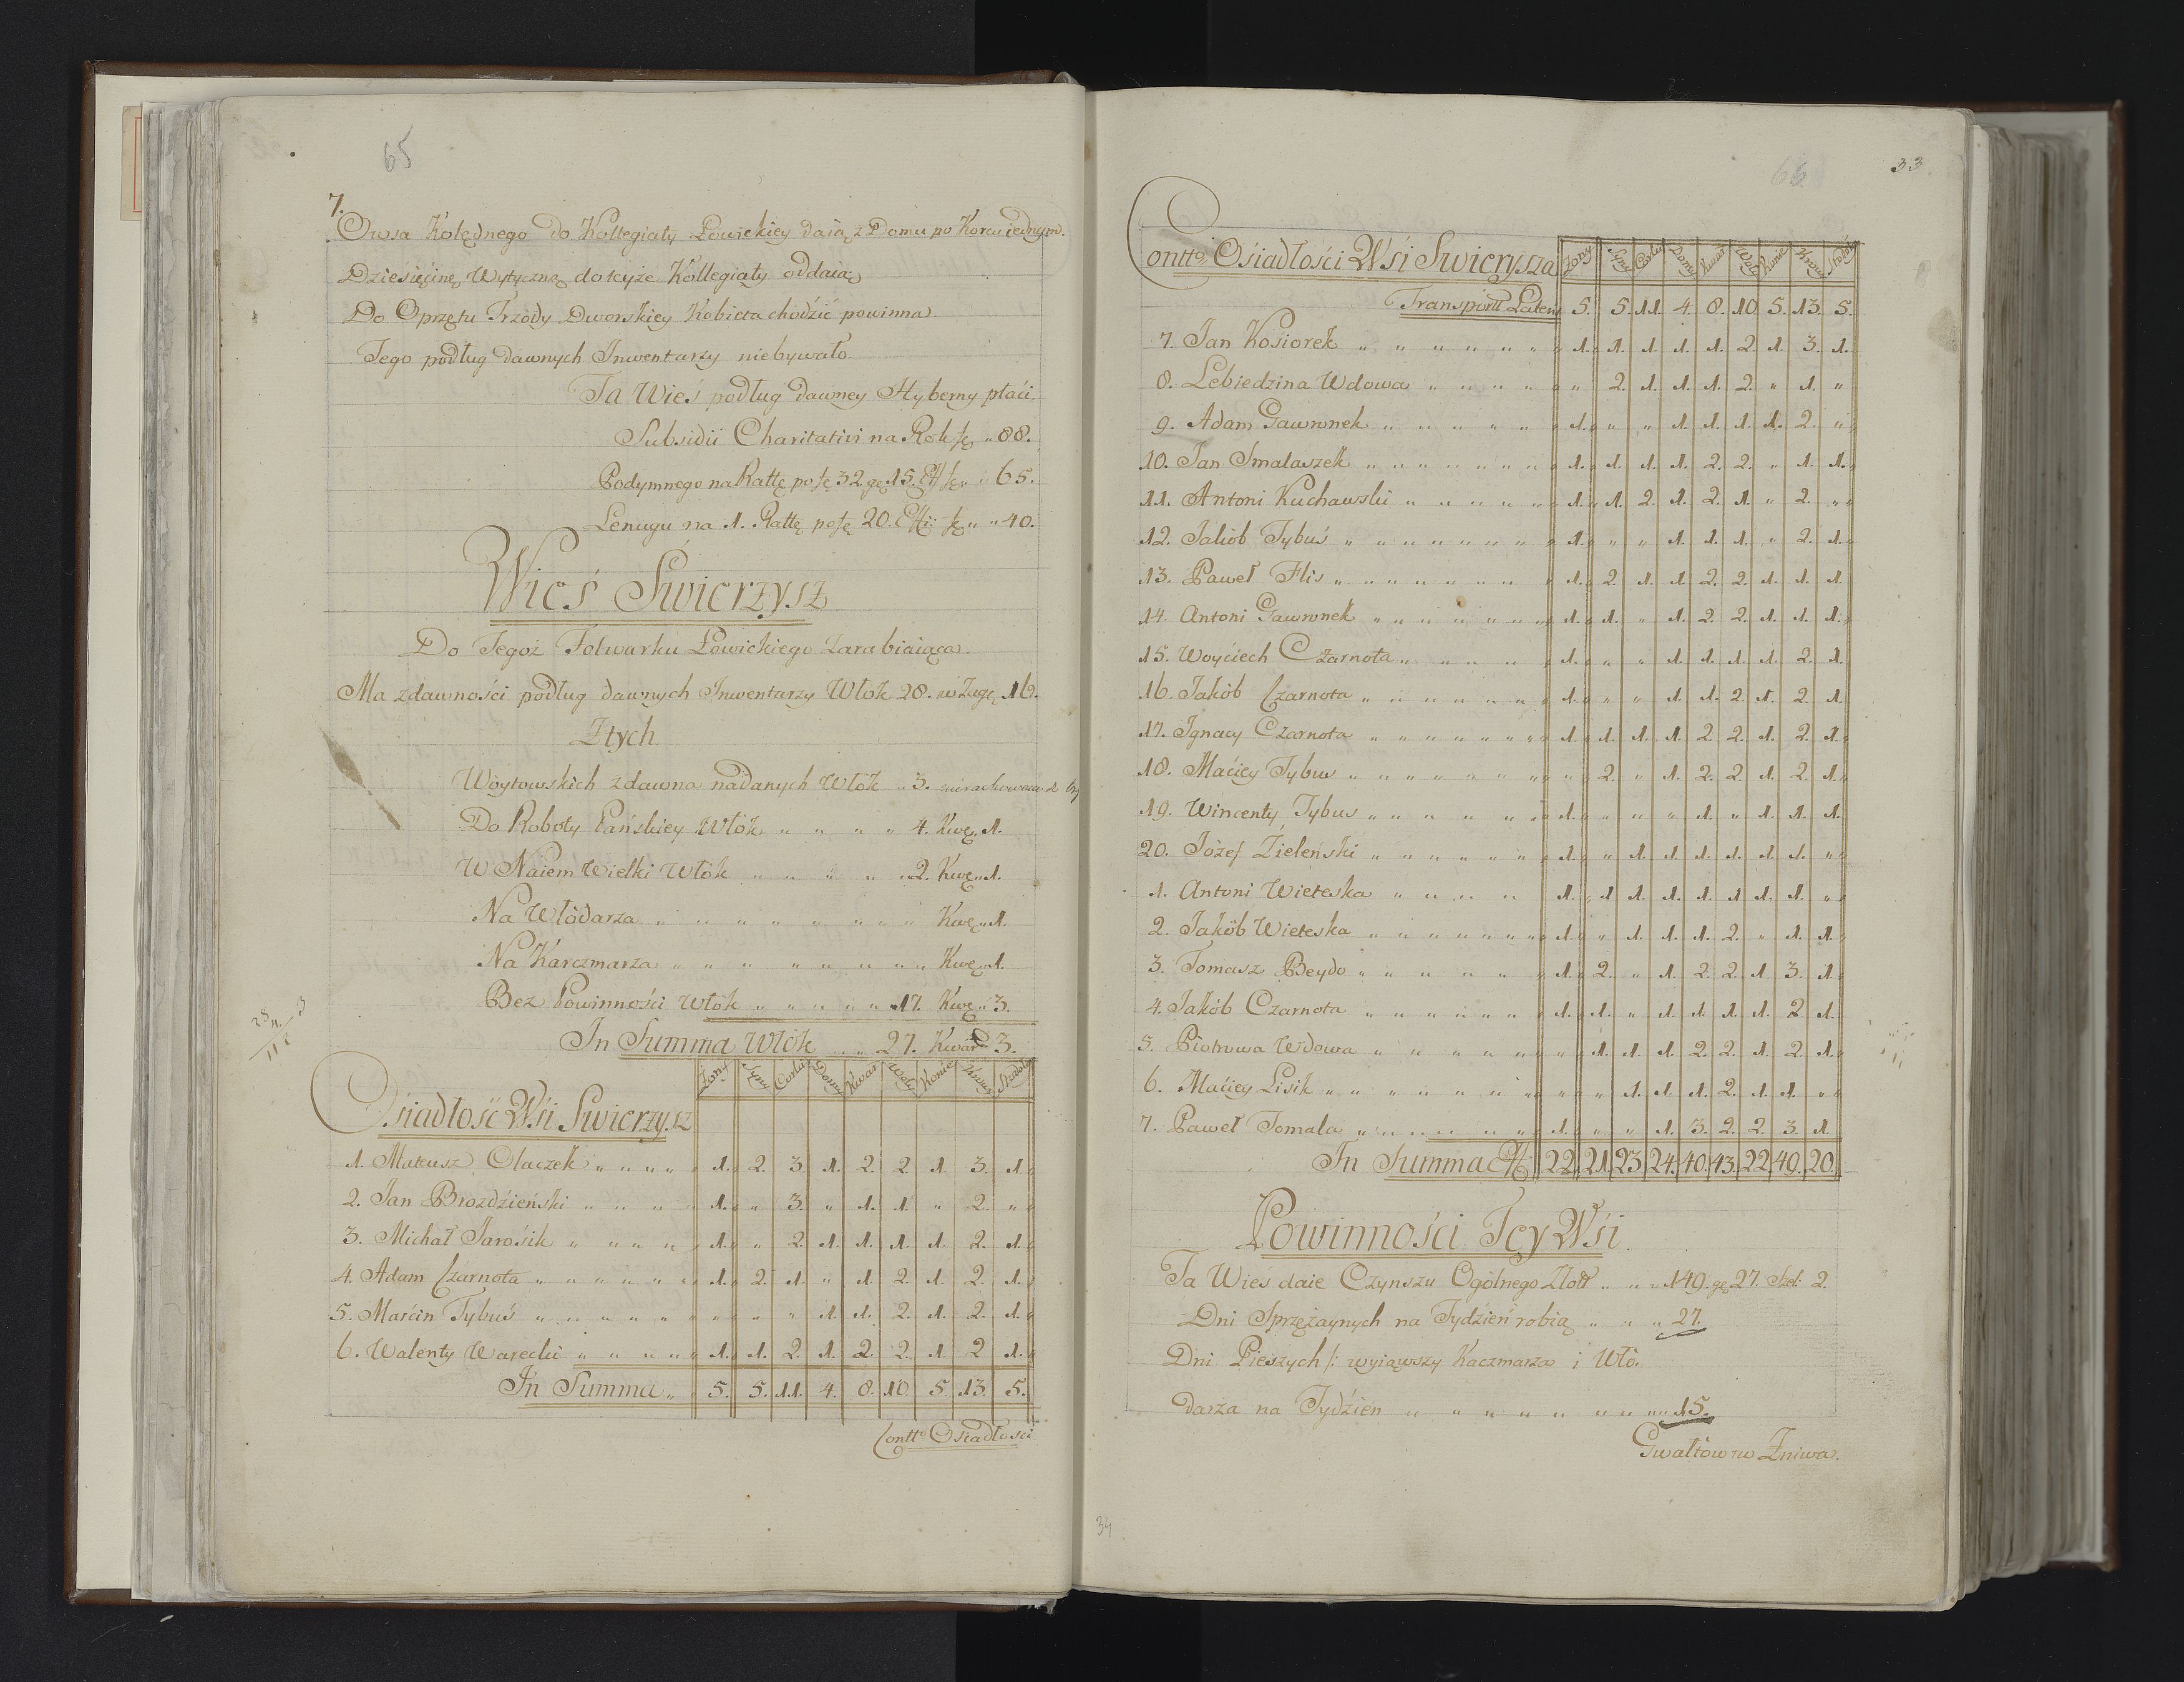 65
7.
Owsa Kolędnego do Kollegiaty Łowickiey daią z Domu po Korcu iednym.
Dziesięcinę Wytyczną do teyże Kollegiaty oddaią
Do Oprzętu Trzody Dworskiey Kobieta chodźić powinna
Tego podług dawnych Inwentarzy niebywało
Ta Wieś podług dawney Hyberny płaći.
Subsidii Charitativi na Rok " 88.
Podymnego na Rattę po 32 15. " 65.
Lenugu na 1. Rattę po 20. " " 40.
Wieś Swierzysz
Do Tegoż Folwarku Łowickiego Zarabiaiąca.
Ma zdawnośći podług dawnych Inwentarzy Włok 28. 16.
Ztych
Woytowskich zdawna nadanych Włok " 3.
Do Roboty Pańskiey Włok " " " " 4. Kwę. 1.
W Naiem Wielki Włok " " " " 2. Kwę " 1.
Na Włodarza " " " " " " " " Kwę " 1.
Na Karczmarza " " " " " " " " Kwę " 1.
Bez Powinnośći Włok " " " " " 17. Kwę " 3.
In Summa Włok " " 27. Kwar 3.
Ośiadłość Wśi Swierzysz Żony Syny Corki Domy Kwar Woły Konie Krowy Stodoły
1. Mateusz Olaczek " " " " 1. 2. 3. 1. 2. 2 1. 3. 1.
2. Jan Brozdźieński " " " " 1. " 3. " 1. 1. " 2. "
3. Michał Jarośik " " " " 1. " 2. 1. 1. 1. 1. 2. 1.
4. Adam Czarnota " " " " " 1. 2. 1. " 1 2. 1. 2. 1.
5. Marćin Tybuś " " " " " " " " 1. 1. 2. 1. 2. 1.
6. Walenty Warecki " " " " 1. 1. 2. 1. 2. 2. 1 2 1.
In Summa " " 5. 5. 11. 4. 8. 10 5 13. 5.
Contto Ośiadłośći
66
33
Contto Ośiadłośći Wśi Swierzysza Żony Syny Corki Domy Kwar Woły Konie Krowy Stodoły
Transport Lateris 5. 5. 11. 4. 8. 10. 5. 13. 5.
7. Jan Kośiorek " " " " " " 1. 1. 1. 1. 1. 2. 1. 3. 1.
8. Lebiedzina Wdowa " " " " " 2. 1. 1. 1. 2. " 1. "
9. Adam Gawronek " " " " " 1. " " 1. 1. 1. 1. 2. "
10. Jan Smalaszek " " " " " " " 1. 1. 1. 1. 2. 2. " 1. 1.
11. Antoni Kuchawski " " " " " 1. 1. 2. 1. 2. 1. " 2. "
12. Jakób Tybuś " " " " " " " 1. " " 1. 1. 1. " 2. 1.
13. Paweł Flis " " " " " " " 1. 2. 1. 1. 2. 2. 1. 1. 1.
14. Antoni Gawronek " " " " " " 1. 1. " 1. 2. 2. 1. 1. 1.
15. Woyćiech Czarnota " " " " " 1. " " 1. 1. 1. 1. 2. 1.
16. Jakób Czarnota " " " " " " 1. " " 1. 1. 2. 1. 2. 1.
17. Ignacy Czarnota " " " " " " 1. 1. 1. 1. 2. 2. 1. 2. 1.
18. Maćiey Tybus " " " " " " " " 2. " 1. 2. 2. 1. 2. 1.
19. Wincenty Tybus " " " " " " 1. " " " 1. " 1. 1. 1.
20. Józef Żieleński " " " " " " 1. " 1. 1. 1. 1. 1. 1. "
1. Antoni Wieteska " " " " " 1. 1 1. 1. 1. 1. 1. 1. "
2. Jakób Wieteska " " " " " " 1. " 1. 1. 1. 2. " 1. 1.
3. Tomasz Beydo " " " " " " 1. 2. " 1. 2. 2. 1. 3. 1.
4. Jakób Czarnota " " " " " " 1. 1. " 1. 1. 1. 1. 2 1.
5. Piotrowa Wdowa " " " " " " " 1. 1. 1. 2. 2. 1. 2. 1.
6. Maćiey Lisik " " " " " " " " " 1. 1. 1. 2. 1. 1. "
7. Paweł Tomala " " " " " " 1. " " 1. 3. 2. 2. 3. 1.
In Summa 22. 21. 23. 24. 40. 43. 22. 49. 20.
Powinnośći Tey Wśi
Ta Wieś daie Czynszu Ogólnego Złot " " " 149. 27. Szel: 2.
Dni Sprzężaynych na Tydźień robią " " " 27.
Dni Pieszych /: wyiąwszy Kaczmarza i Wło.
darza na Tydźień " " " " " " " " 15.
Gwałtow w Żniwa.
34